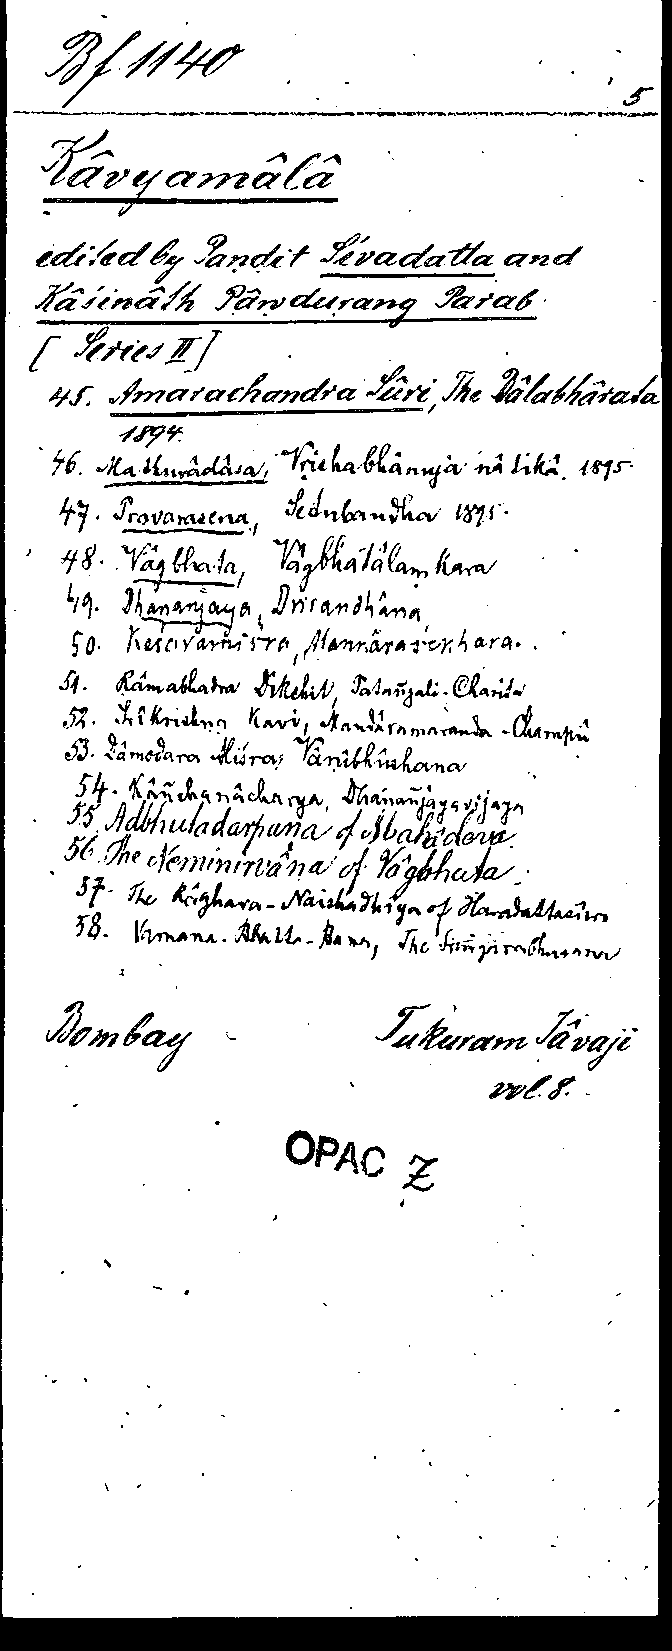 Bf 1140
5
Kâvyamâlâ
edited by Pandit Sivadatta and
Kâsinâth Pândurang Parab
[ Series III ]
45. Amarachandra Sûri, The Bâlabhârata
1894.
46. Mathurâdâsa, Vrishabhânuja nâtikâ. 1895.
47. Pravarasena, Setubandha 1895.
48. Vâgbhata, Vâgbhatâlamkara
49. Dhananjaya, Dvisandhâna
50. Kesavamisra,
51. Râmabhadra Dikshit, Patañjali-Charita
52. Srîkrishna Kavi, Mandâramaranda-Champû
53. Dâmodara Misra, Vânîbhûshana
54. Kâñchanâcharya, Dhanañjayavijaya
55. Adbhutadarpana of Mahâdeva.
56. The Neminirvâna of Vâgbhata.
57. The - Naishadhîya of
58. Vamana-Bhatta-Bana, The
Bombay
Tukaram Jâvaji
vol. 8.
OPAC Z